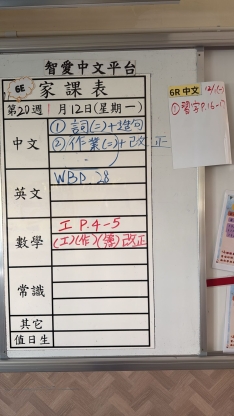 智愛中文平台
6E 家課表
第20週 1月12日(星期一)
中文
① 詞(二)+造句
② 作業(二)+改正
英文
WB P.28
數學
工 P.4-5
(工)(作)(簿)改正
常識
其它
值日生
6R 中文
12/1(一)
① 習字 P.16-17